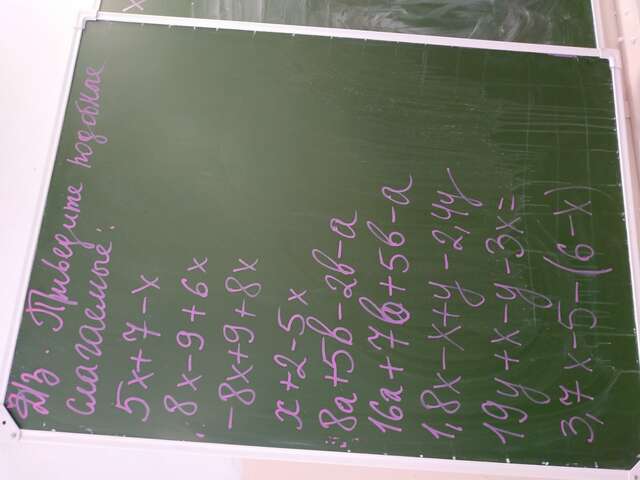 Д/з. Приведите подобные
слагаемые:
5x+7-x
8x-9+6x
-8x+9+8x
x+2-5x
8a+5b-2b-a
16a+7b+5b-a
1,8x-x+y-2,4y
19y+x-y-3x=
3,7x-5-(6-x)